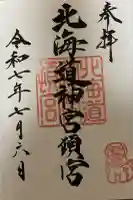 奉拝
北海道神宮頓宮
令和七年七月六日